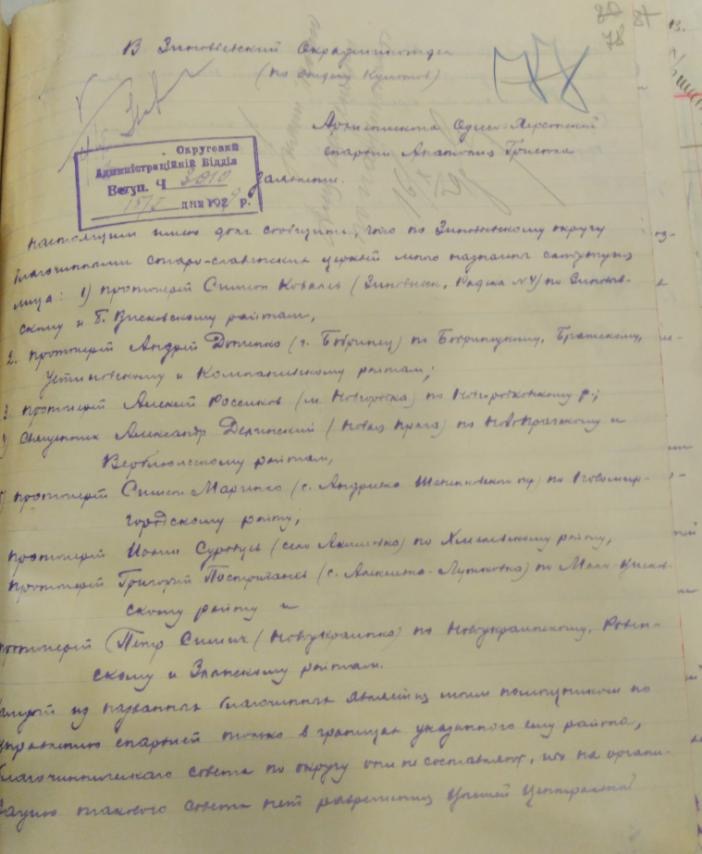 80 81
78
В Зиновьевский Окрадминотдел
(по отделу Культов)
77
Архиепископа Одесско-Херсонской
епархии Анатолия
Округовий
Адміністраційний Відділ
Вступ. Ч 3010
дня 192 р.
Заявление.
16/I 29
Настоящим имею долг сообщить, что по Зиновьевскому округу
благочинными старо-славянских церквей мною назначены следующие
лица: 1) протоиерей Симеон Коваль (Зиновьевск, № 4) по Зиновьев-
скому и Б. Висковскому районам,
2. протоиерей Андрей Доценко (г. Бобринец) по Бобринецкому, Братскому,
Устиновскому и Компанеевскому районам;
3. протоиерей Алексей Россиков (м. Новгородка) по Новгородковскому р.;
Священник Александр (Новая Прага) по Новопражскому и
Верблюжскому районам,
протоиерей Симеон Маренко (с. Андреевка) по Новомир-
городскому району,
протоиерей Иоанн (село Акимовка) по Хмелевскому району,
протоиерей Григорий (с. Алексеевка) по Мало-Висков-
скому району и
протоиерей Петр Симич (Новоукраинка) по Новоукраинскому, Ровен-
скому и районам.
Каждый из названных благочинных является моим помощником по
управлению епархией только в границах указанного ему района,
благочиннического совета по округу они не составляют, ибо на органи-
зацию такового совета нет разрешения Центральной